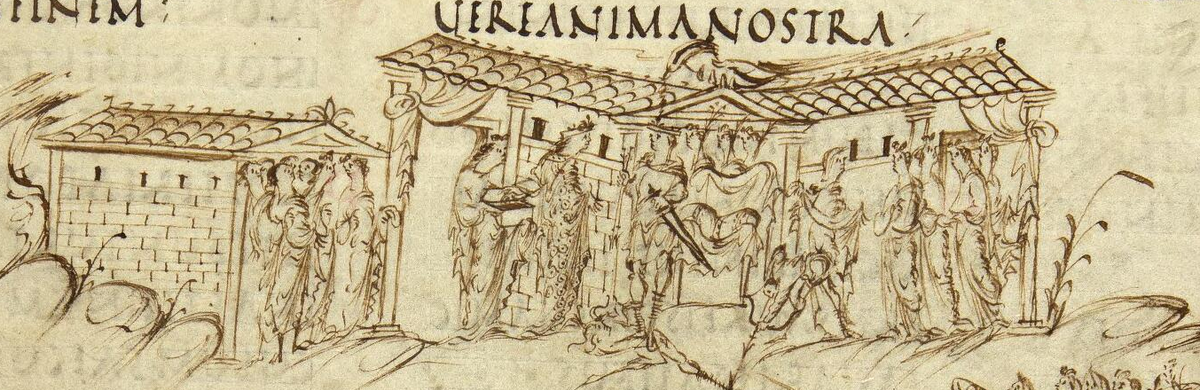 FINEM:
UEREANIMANOSTRA: